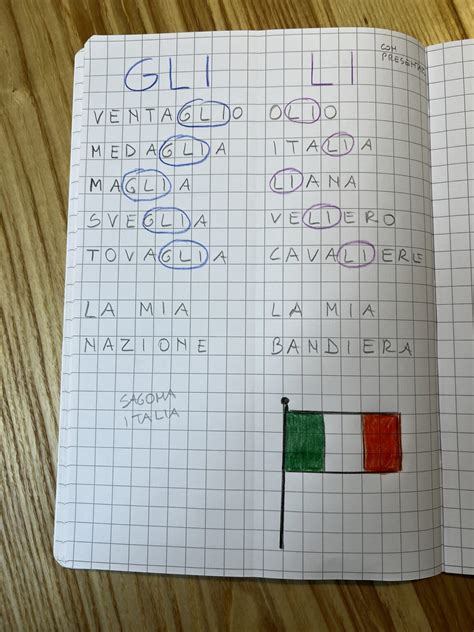 GLI LI
COM
VENTAGLIO OLIO
MEDAGLIA ITALIA
MAGLIA LIANA
SVEGLIA VELIERO
TOVAGLIA CAVALIERE
LA MIA LA MIA
NAZIONE BANDIERA
SAGOMA
ITALIA